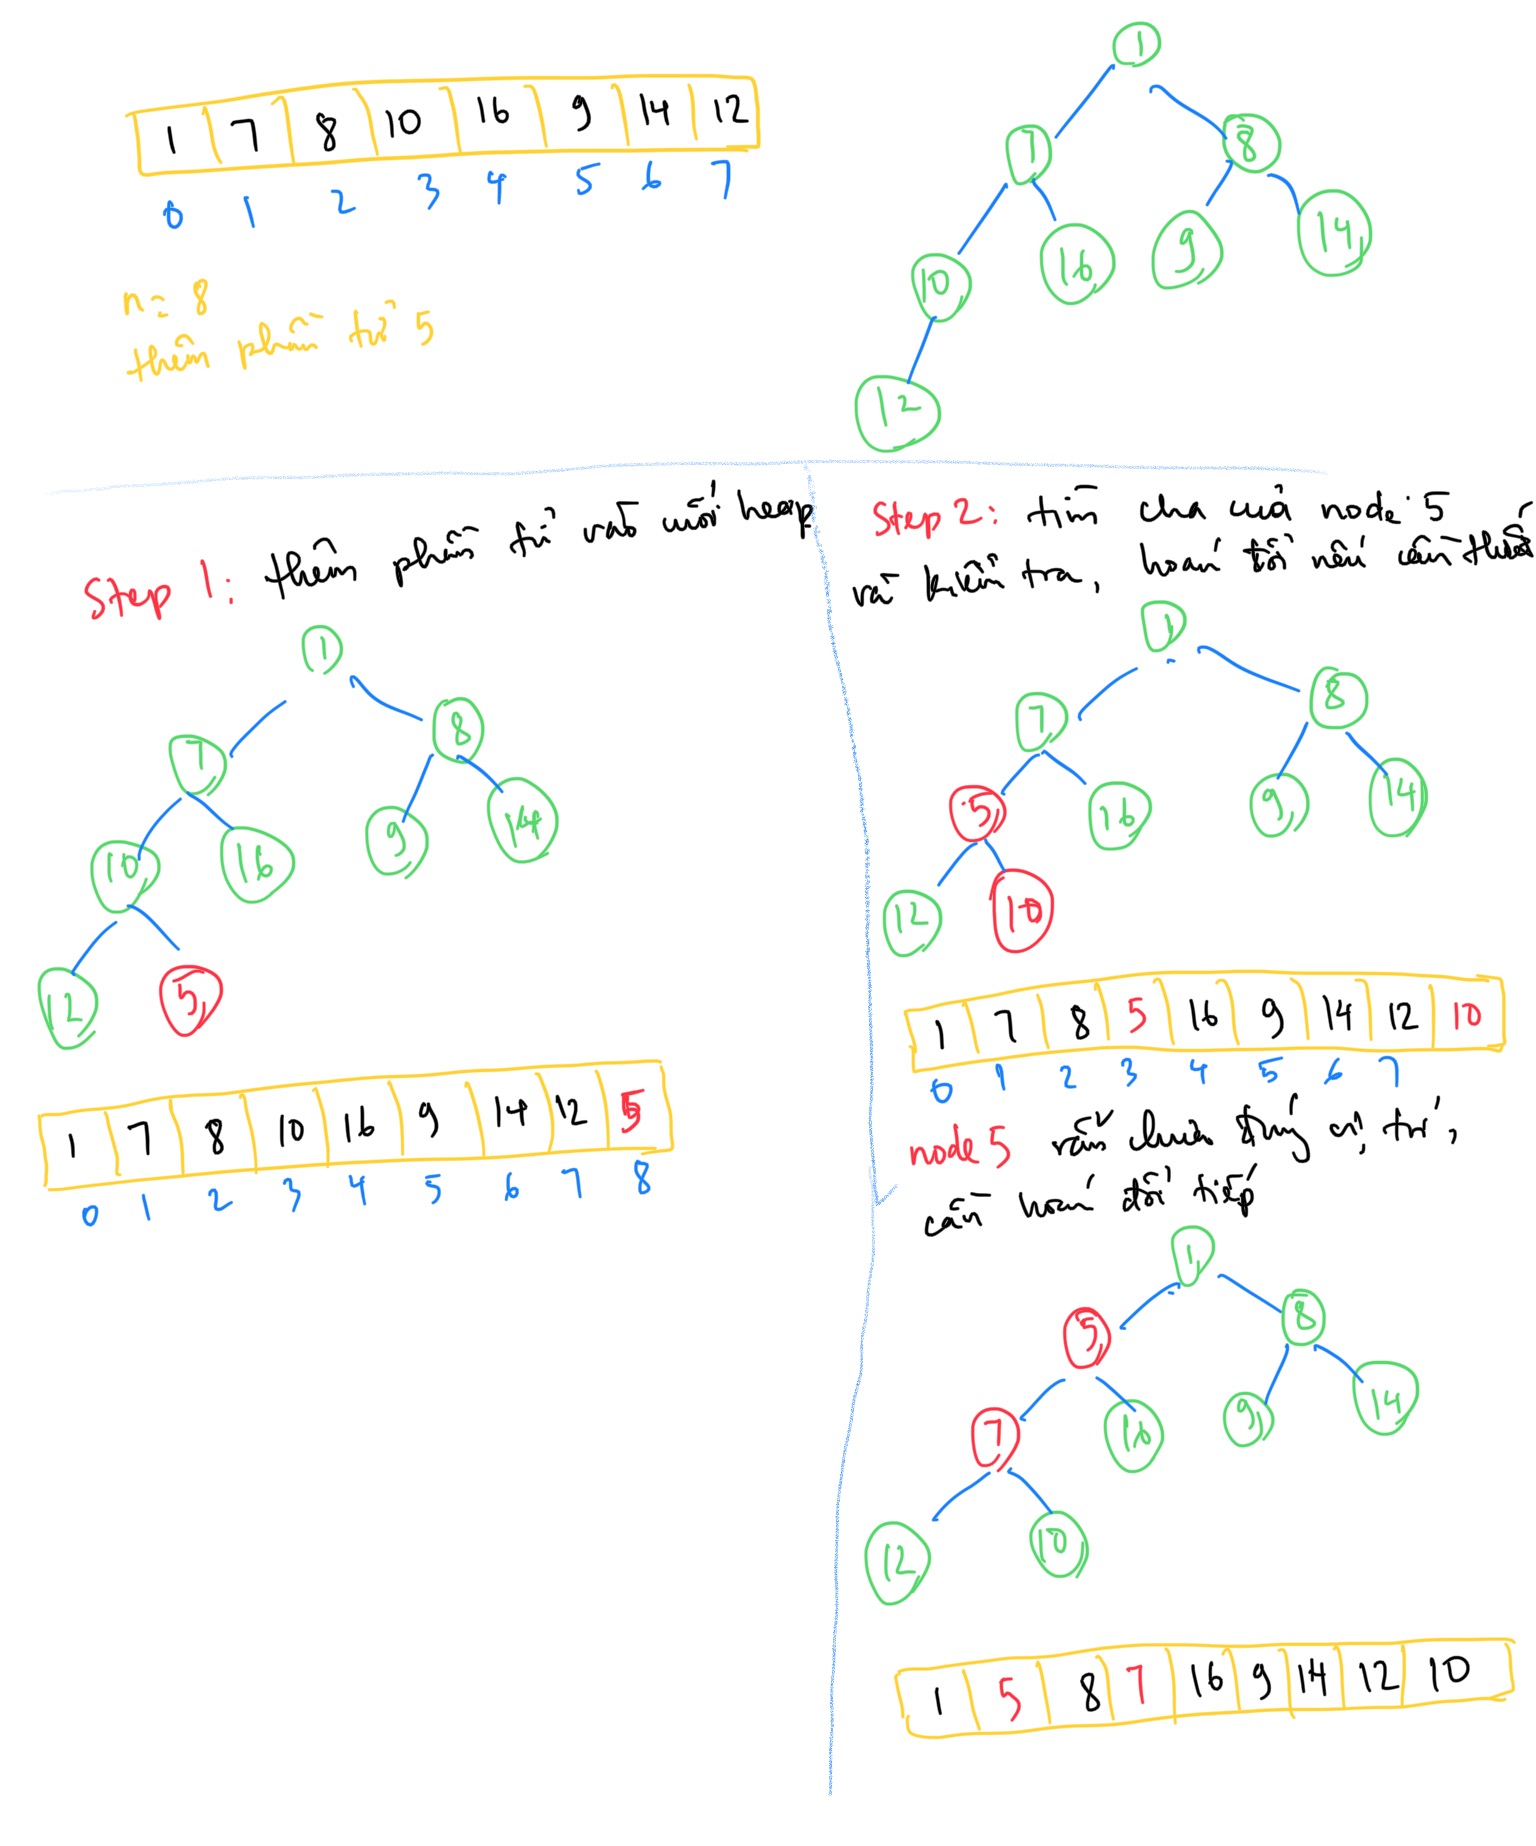 1 7 8 10 16 9 14 12
0 1 2 3 4 5 6 7
n = 8
thêm phần tử 5
1
7 8
10 16 9 14
12
Step 1: thêm phần tử vào cuối heap
1
7 8
10 16 9 14
12 5
1 7 8 10 16 9 14 12 5
0 1 2 3 4 5 6 7 8
Step 2: tìm cha của node 5
và kiểm tra, hoán đổi nếu cần thiết
1
7 8
5 16 9 14
12 10
1 7 8 5 16 9 14 12 10
0 1 2 3 4 5 6 7
node 5 vẫn chưa đúng vị trí,
cần hoán đổi tiếp
1
5 8
7 16 9 14
12 10
1 5 8 7 16 9 14 12 10